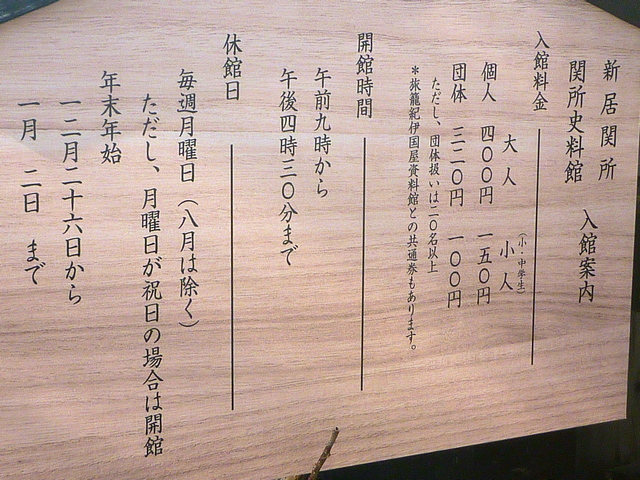 新居関所
関所史料館 入館案内
入館料金
大人 小人(小・中学生)
個人 四〇〇円 一五〇円
団体 三二〇円 一〇〇円
ただし、団体扱いは二〇名以上
*旅籠紀伊国屋資料館との共通券もあります。
開館時間
午前九時から
午後四時三〇分まで
休館日
毎週月曜日(八月は除く)
ただし、月曜日が祝日の場合は開館
年末年始
一二月二十六日から
一月 二日 まで